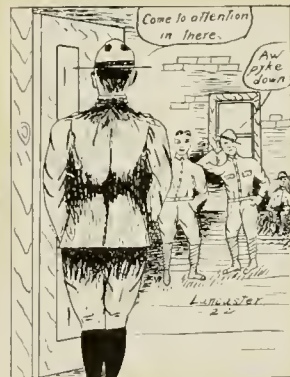 Come to attention
in there.
Aw
pyke
down
Lancaster